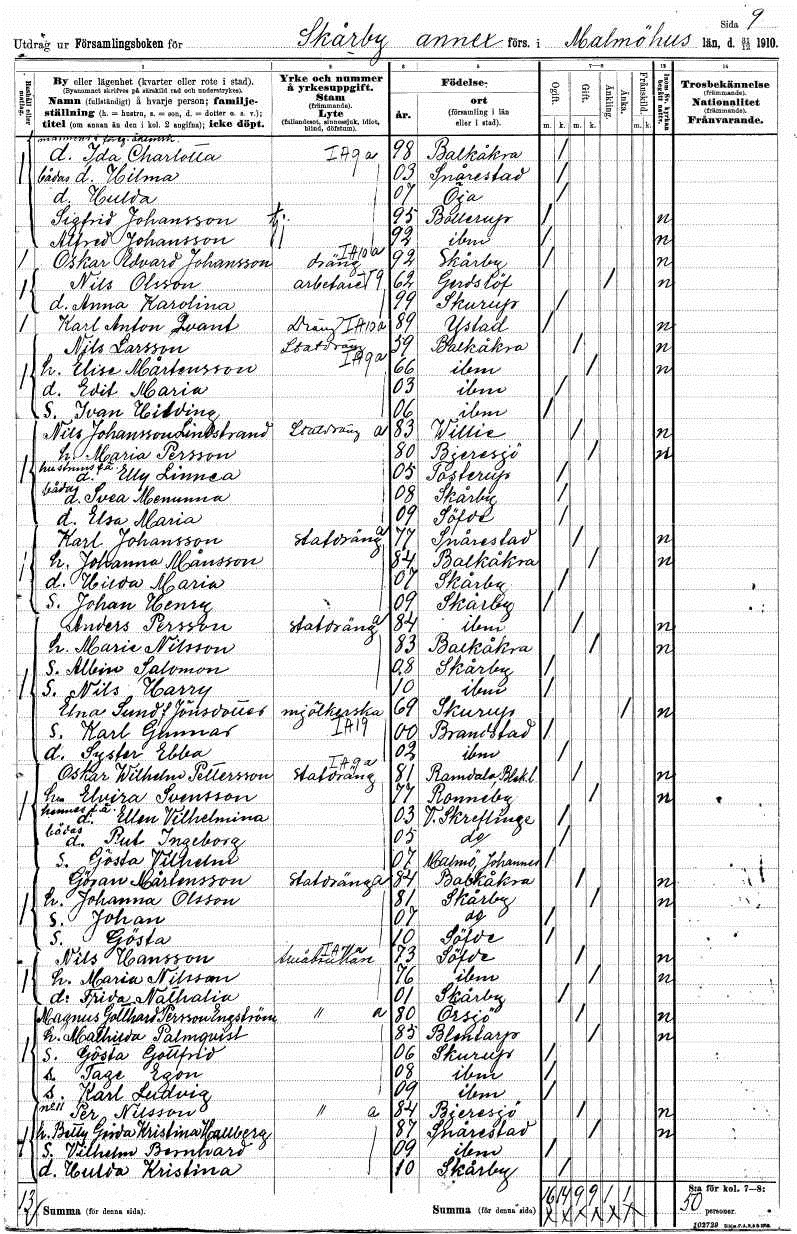 Sida 9
Utdrag ur Församlingsboken för Skårby annex förs. i Malmöhus län, d. 31/12 1910.
By eller lägenhet (kvarter eller rote i stad).
(Byanamnet skrifves på särskild rad och understrykes).
Namn (fullständigt) å hvarje person; familjeställning (h. = hustru, s. = son, d. = dotter o. s. v.); titel (om annan än den i kol. 2 angifna); icke döpt.
Yrke och nummer å yrkesuppgift.
Stam (främmande).
Lyte (fallandesot, sinnessjuk, idiot, blind, döfstum).
Födelse-
år. ort (församling i län eller i stad).
Ogift. Gift. Änkling. Änka. Frånskild.
m. k. m. k. m. k.
Trosbekännelse (främmande).
Nationalitet (främmande).
Frånvarande.
d. Ida Charlotta IA9a 98 Balkåkra /
bådas d. Hilma 03 Snårestad /
d. Hulda 07 Öja /
Sigfrid Johansson 95 Bollerup / n
Alfred Johansson 92 ibm / n
Oskar Edvard Johansson dräng IA10a 92 Skårby / n
Nils Olsson arbetare 62 Gerdslöf / n
d. Anna Karolina 99 Skurup /
Karl Anton Qvant dräng IA10a 89 Ystad / n
Nils Larsson Statdräng IA9a 59 Balkåkra / n
h. Elise Mårtensson 66 ibm / n
d. Edit Maria 03 ibm /
S. Ivan Hilding 06 ibm /
Nils Johansson Lindstrand Statdräng a 83 Willie / n
h. Maria Persson 80 Bjeresjö / n
hustruns f.ä. d. Elly Linnea 05 Tosterup /
bådas d. Svea Menunna 08 Skårby /
d. Elsa Maria 09 Söfde /
Karl Johansson statdräng a 77 Snårestad / n
h. Johanna Månsson 84 Balkåkra / n
d. Hilda Maria 07 Skårby /
S. Johan Henry 09 Skårby /
Anders Persson statdräng a 84 ibm / n
h. Marie Nilsson 83 Balkåkra / n
S. Albin Salomon 08 Skårby /
S. Nils Harry 10 ibm /
Elna Sund f. Jönsdotter mjölkerska 69 Skurup / n
S. Karl Gunnar IA19 00 Brandstad /
d. Syster Ebba 02 ibm /
Oskar Wilhelm Pettersson statdräng IA9a 81 Ramdala, Blek.l / n
h. Elvira Svensson 77 Ronneby / n
hennes f.ä. d. Ellen Vilhelmina 03 V. Skreflinge /
bådas d. Rut Ingeborg 05 do /
S. Gösta Vilhelm 07 Malmö, Johannes /
Göran Mårtensson statdräng a 84 Balkåkra / n
h. Johanna Olsson 81 Skårby / n
S. Johan 07 do /
S. Gösta 10 Söfde /
Nils Hansson 73 Söfde / n
h. Maria Nilsson 76 ibm / n
d. Frida Nathalia 01 Skårby /
Magnus Gotthard Persson Engström " a 80 Örsjö / n
h. Mathilda Palmqvist 85 Blentarp / n
S. Gösta Gottfrid 06 Skurup /
s. Tage Egon 08 ibm /
s. Karl Ludvig 09 ibm /
no 11 Per Nilsson " a 84 Bjeresjö / n
h. Betty Gerda Kristina Hallberg 87 Snårestad / n
S. Vilhelm Bernhard 09 ibm /
d. Hulda Kristina 10 Skårby /
13 Summa (för denna sida). Summa (för denna sida) 16 14 9 9 1 1
S:a för kol. 7–8: 50 personer.
102729